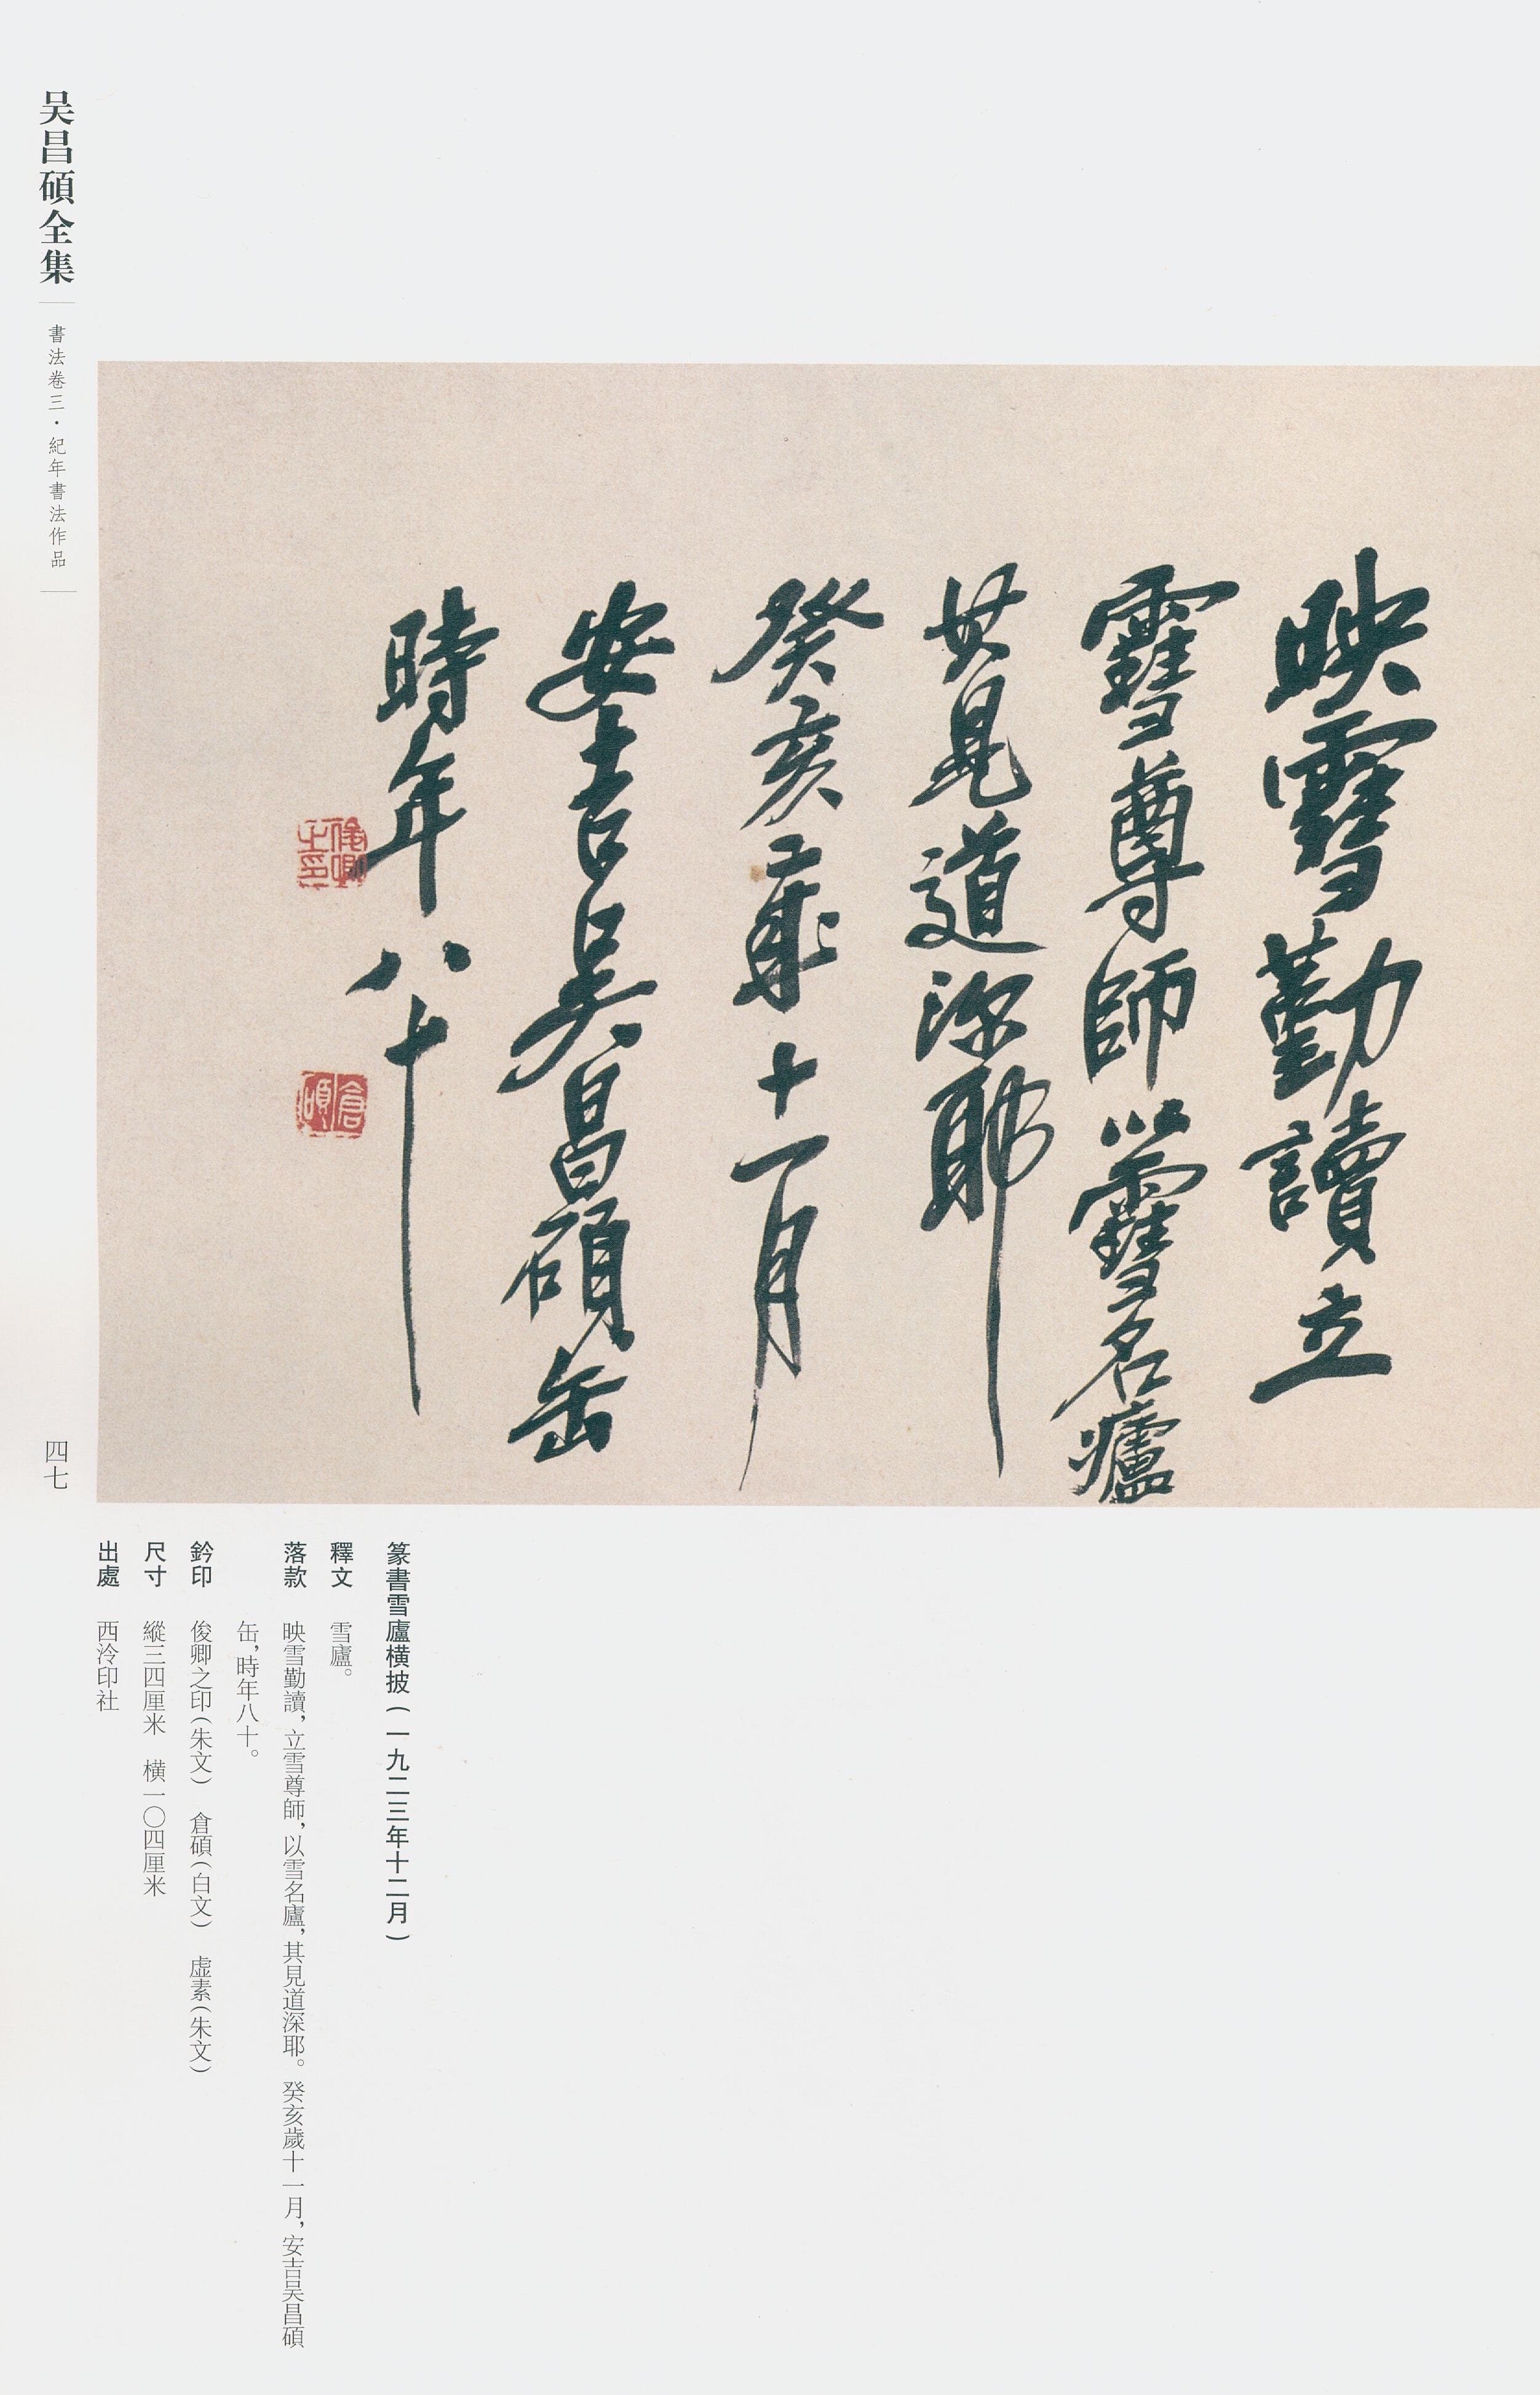 映雪勤讀立
雪尊師以雪名廬
其見道深耶
癸亥歲十一月
安吉吴昌碩缶
時年八十
俊卿之印
倉碩
篆書雪廬橫披(一九二三年十二月)
釋文 雪廬。
落款 映雪勤讀,立雪尊師,以雪名廬,其見道深耶。癸亥歲十一月,安吉吴昌碩
缶,時年八十。
鈐印 俊卿之印(朱文) 倉碩(白文) 虚素(朱文)
尺寸 縱三四厘米 横一〇四厘米
出處 西泠印社
吴昌碩全集
書法卷三·紀年書法作品
四七